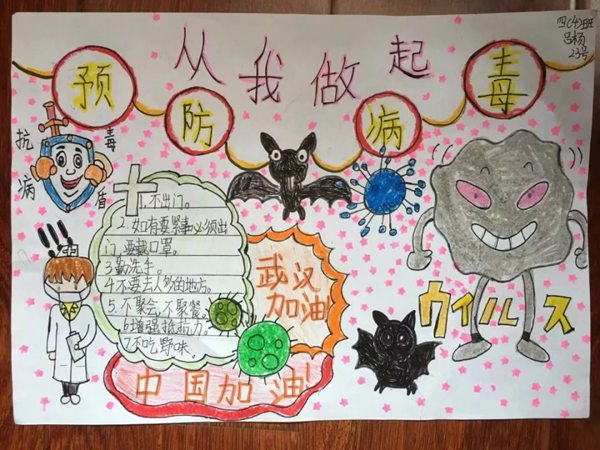 四(4)班
吕杨
23号
从我做起
预防病毒
抗病毒盾
!!!
1.不出门。
2.如有要紧事必须出
门,要戴口罩。
3勤洗手。
4不要去人多的地方。
5.不聚会,不聚餐。
6增强抵抗力.
7.不吃野味。
武汉
加油!
中国加油!
ウイルス